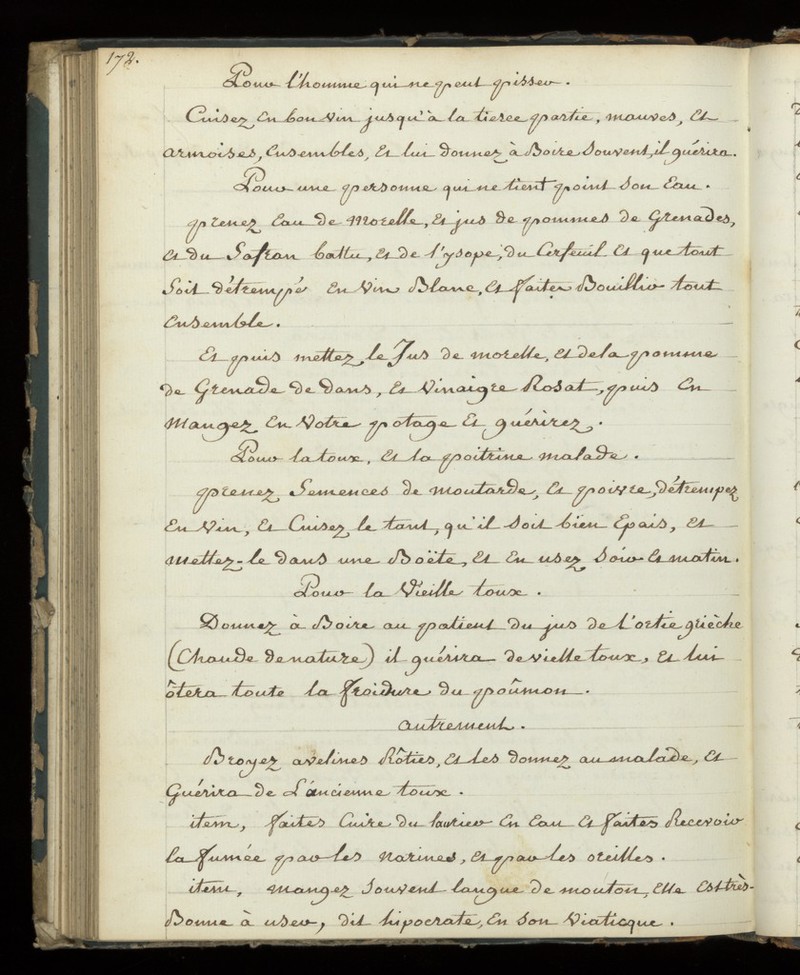 172.
Pour l'homme qui ne peut pisser.
Cuisez en bon vin jusqu'à la tierce partie, mauves, et
armoises, ensembles, et lui donnez à Boire souvent, il guérira.
Pour une personne qui ne tient point son Eau.
prenez Eau de Morelle, et jus de pommes de Grenades,
et du Safran battu, et de l'ysope, du Cerfeuil et que tout
Soit détrempé En Vin Blanc, et faites Bouillir tout
Ensemble.
Et puis mettez le Jus de morelle, et de la pomme
de Grenade de dans, et Vinaigre Rosat, puis En
Mangez En Votre potage Et guérirez.
Pour la toux, et la poitrine malade.
prenez Semences de moutarde, et poivre, détrempez
En Vin, et Cuisez le tant, qu'il soit bien Epais, et
mettez-le dans une Boëte, et En usez soir et matin.
Pour la Vieille toux.
Donnez à Boire au patient du jus de l'ortie grièche
(Chaude de nature) il guérira de vielle toux, et lui
ôtera toute la froidure du poûmon.
autrement.
Broyez avelines Rôties, et les donnez au malade, et
Guérira de L'ancienne toux.
item, faites Cuire du laurier En Eau et faites Recevoir
la fumée par les narines, et par les oreilles.
item, mangez souvent langue de mouton, elle est très-
Bonne à user, dit hipocrate, En son Viatique.